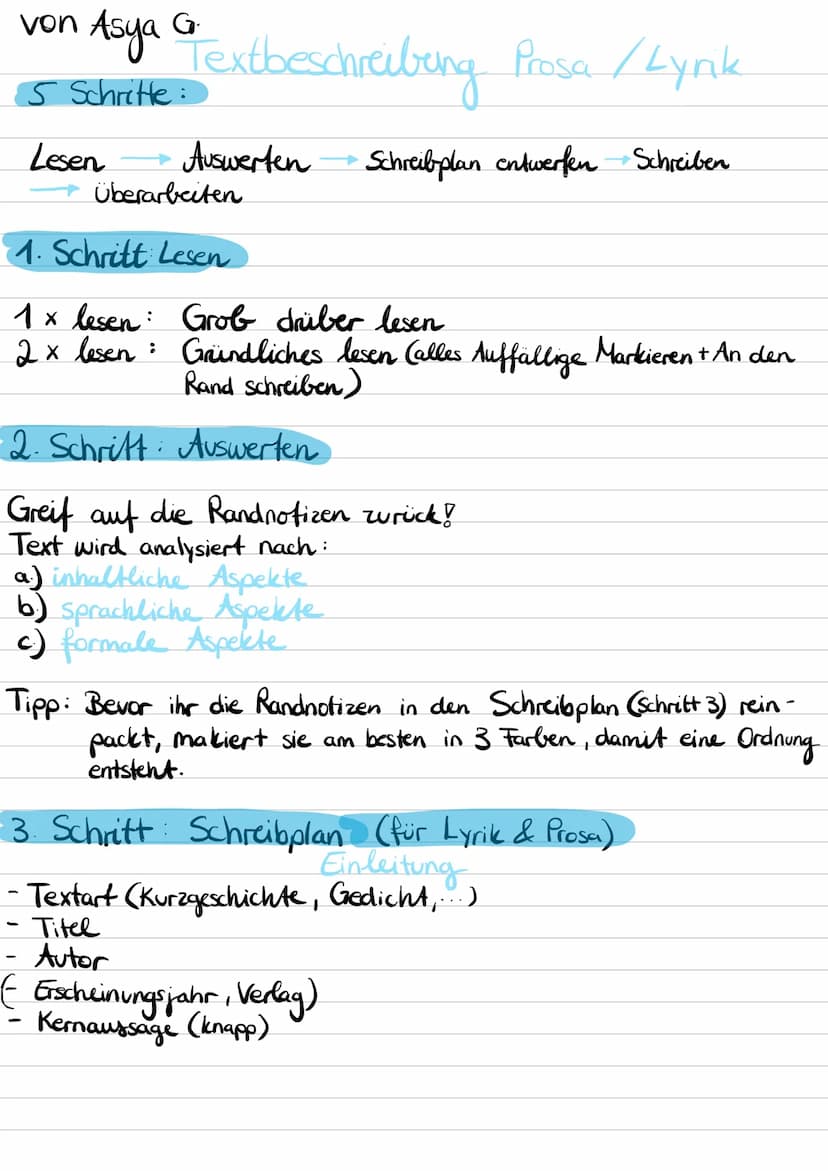 von Asya G.
Textbeschreibung Prosa / Lyrik
5 Schritte:
Lesen → Auswerten → Schreibplan entwerfen → Schreiben
→ Überarbeiten
1. Schritt: Lesen
1 x lesen: Grob drüber lesen
2 x lesen: Gründliches lesen (alles Auffällige Markieren + An den
Rand schreiben)
2. Schritt: Auswerten
Greif auf die Randnotizen zurück!
Text wird analysiert nach:
a.) inhaltliche Aspekte
b.) sprachliche Aspekte
c.) formale Aspekte
Tipp: Bevor ihr die Randnotizen in den Schreibplan (Schritt 3) rein-
packt, makiert sie am besten in 3 Farben, damit eine Ordnung
entsteht.
3. Schritt: Schreibplan (für Lyrik & Prosa)
Einleitung
- Textart (Kurzgeschichte, Gedicht,...)
- Titel
- Autor
(- Erscheinungsjahr, Verlag)
- Kernaussage (knapp)